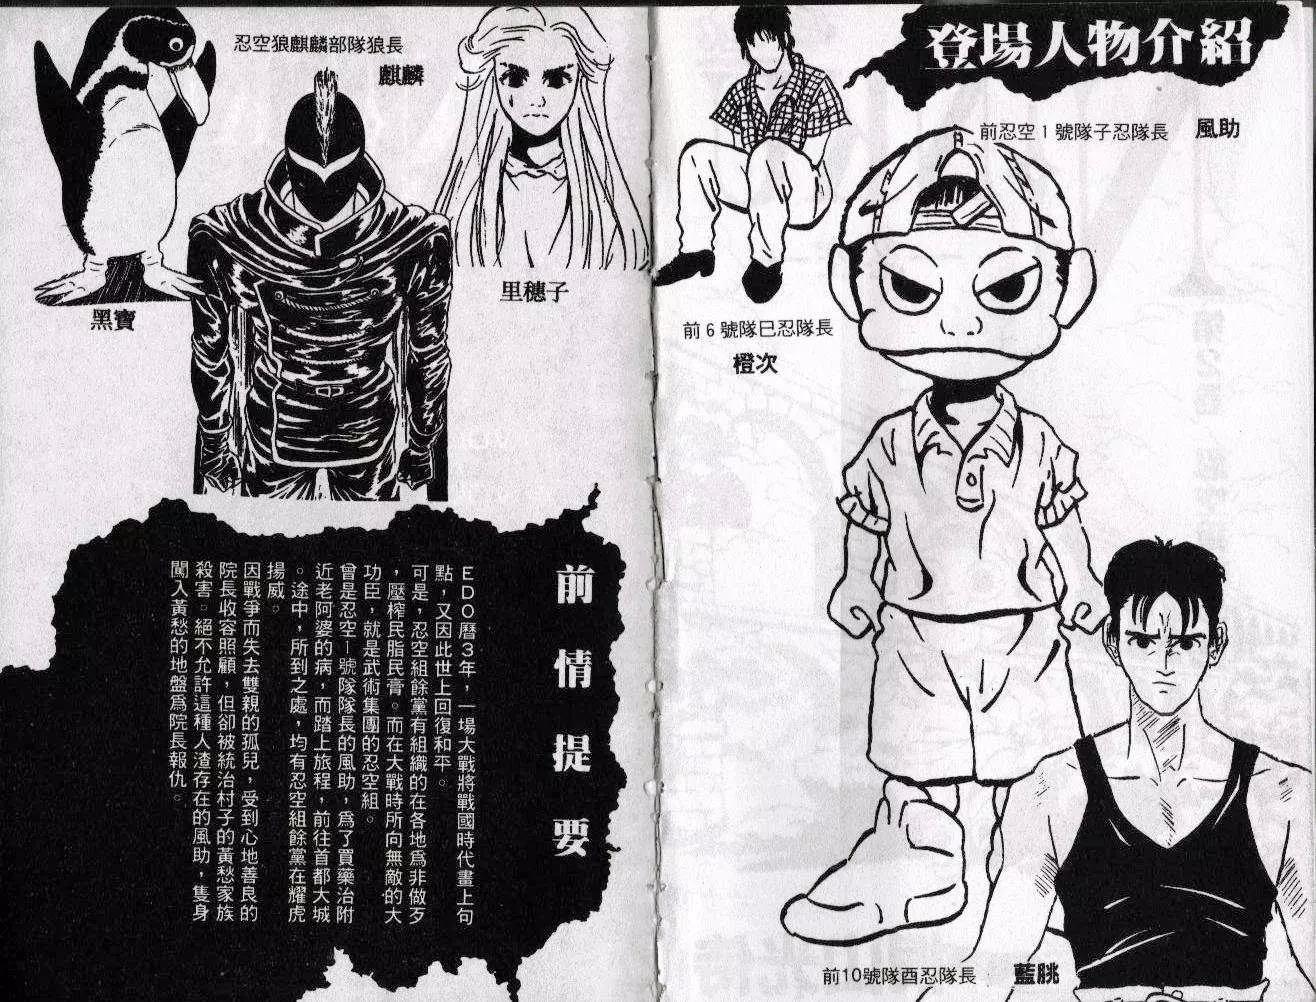 登場人物介紹
前忍空1號隊子忍隊長 風助
前6號隊巳忍隊長
橙次
前10號隊酉忍隊長 藍朓
里穗子
忍空狼麒麟部隊狼長
麒麟
黑寶
前情提要
EDO曆3年，一場大戰將戰國時代畫上句
點，又因此世上回復和平。
可是，忍空組餘黨有組織的在各地爲非做歹
，壓榨民脂民膏。而在大戰時所向無敵的大
功臣，就是武術集團的忍空組。
曾是忍空一號隊隊長的風助，爲了買藥治附
近老阿婆的病，而踏上旅程，前往首都大城
。途中，所到之處，均有忍空組餘黨在耀虎
揚威。
因戰爭而失去雙親的孤兒，受到心地善良的
院長收容照顧，但卻被統治村子的黃愁家族
殺害。絕不允許這種人渣存在的風助，隻身
闖入黃愁的地盤爲院長報仇。